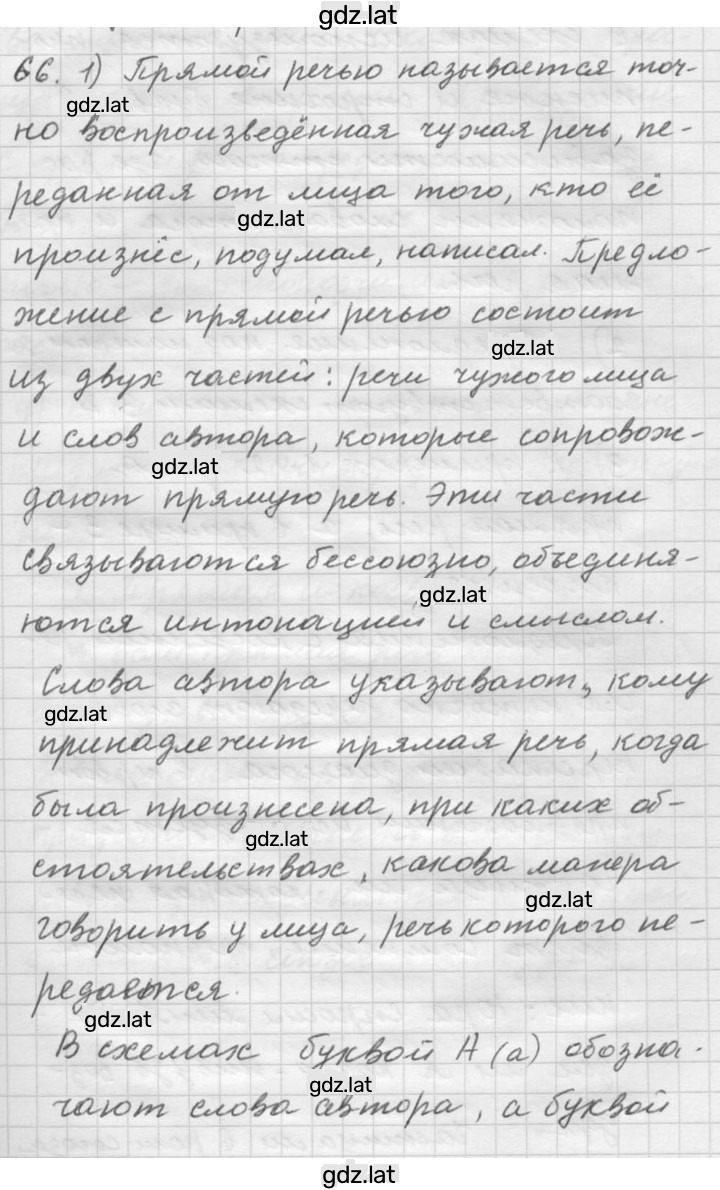 gdz.lat
66. 1) Прямой речью называется точ-
gdz.lat
но воспроизведённая чужая речь, пе-
реданная от лица того, кто её
gdz.lat
произнёс, подумал, написал. Предло-
жение с прямой речью состоит
gdz.lat
из двух частей: речи чужого лица
и слов автора, которые сопровож-
gdz.lat
дают прямую речь. Эти части
связываются бессоюзно, объединя-
gdz.lat
ются интонацией и смыслом.
Слова автора указывают, кому
gdz.lat
принадлежит прямая речь, когда
была произнесена, при каких об-
gdz.lat
стоятельствах, какова манера
gdz.lat
говорить у лица, речь которого пе-
редаётся.
gdz.lat
В схемах буквой А (а) обозна-
gdz.lat
чают слова автора, а буквой
gdz.lat